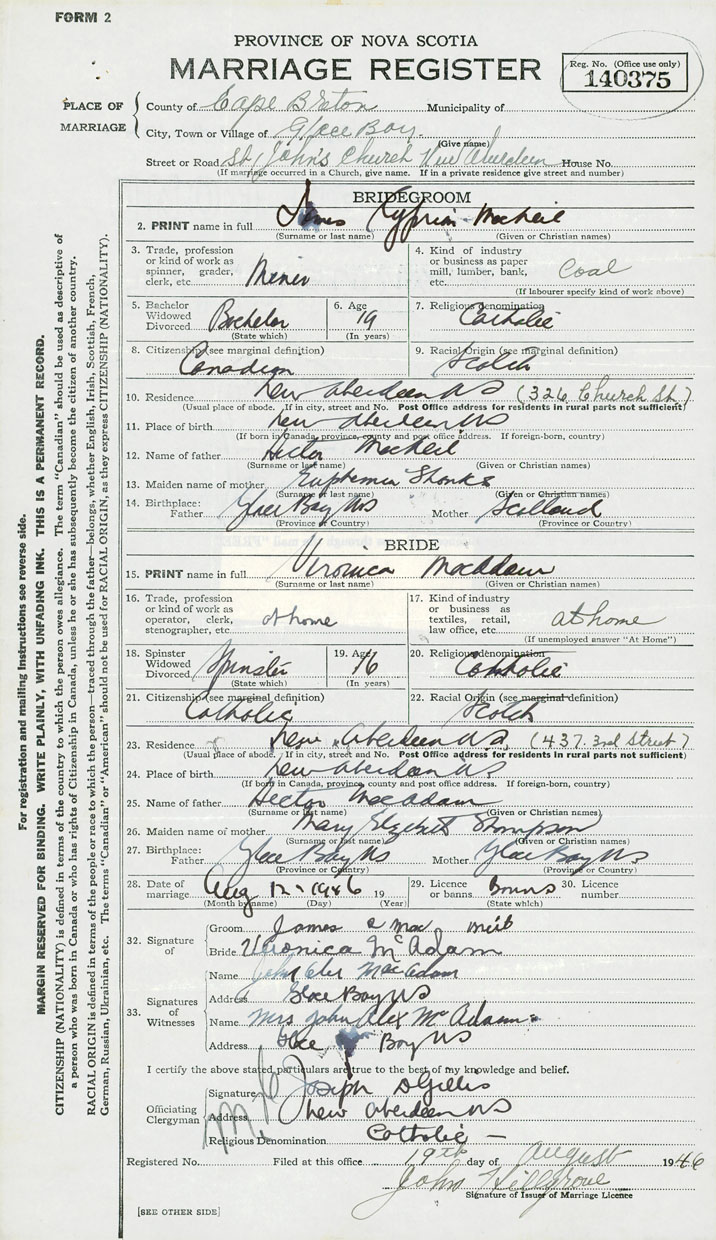 FORM 2
PROVINCE OF NOVA SCOTIA
MARRIAGE REGISTER
Reg. No. (Office use only)
140375
PLACE OF MARRIAGE
County of Cape Breton Municipality of
City, Town or Village of Glace Bay.
(Give name)
Street or Road St, John's Church New Aberdeen House No.
(If marriage occurred in a Church, give name. If in a private residence give street and number)
BRIDEGROOM
2. PRINT name in full James Cyprian MacNeil
(Surname or last name) (Given or Christian names)
3. Trade, profession or kind of work as spinner, grader, clerk, etc. Miner
4. Kind of industry or business as paper mill, lumber, bank, etc. Coal
(If labourer specify kind of work above)
5. Bachelor Widowed Divorced Bachelor
(State which)
6. Age 19
(In years)
7. Religious denomination
Catholic
8. Citizenship (see marginal definition)
Canadian
9. Racial Origin (see marginal definition)
Scotch
10. Residence New Aberdeen NS (326 Church St.)
(Usual place of abode. If in city, street and No. Post Office address for residents in rural parts not sufficient)
11. Place of birth New Aberdeen NS
(If born in Canada, province, county and post office address. If foreign-born, country)
12. Name of father Hector MacNeil
(Surname or last name) (Given or Christian names)
13. Maiden name of mother Euphemia Shanks
(Surname or last name) (Given or Christian names)
14. Birthplace: Father Glace Bay NS Mother Scotland
(Province or Country) (Province or Country)
BRIDE
15. PRINT name in full Veronica MacAdam
(Surname or last name) (Given or Christian names)
16. Trade, profession or kind of work as operator, clerk, stenographer, etc. at home
17. Kind of industry or business as textiles, retail, law office, etc. at home
(If unemployed answer "At Home")
18. Spinster Widowed Divorced Spinster
(State which)
19. Age 16
(In years)
20. Religious denomination
Catholic
21. Citizenship (see marginal definition)
Catholic
22. Racial Origin (see marginal definition)
Scotch
23. Residence New Aberdeen NS, (437 3rd Street)
(Usual place of abode. If in city, street and No. Post Office address for residents in rural parts not sufficient)
24. Place of birth New Aberdeen NS
(If born in Canada, province, county and post office address. If foreign-born, country)
25. Name of father Hector MacAdam
(Surname or last name) (Given or Christian names)
26. Maiden name of mother Mary Elizabeth Thompson
(Surname or last name) (Given or Christian names)
27. Birthplace: Father Glace Bay NS Mother Glace Bay NS
(Province or Country) (Province or Country)
28. Date of marriage Aug 12 - 1946 19
(Month by name) (Day) (Year)
29. Licence or banns Banns
(State which)
30. Licence number
32. Signature of
Groom James C Mac Neil
Bride Veronica McAdam
33. Signatures of Witnesses
Name John Alex MacAdam
Address Glace Bay NS
Name Mrs John Alex McAdam
Address Glace Bay NS
I certify the above stated particulars are true to the best of my knowledge and belief.
Officiating Clergyman
Signature Joseph D Gillis
Address New Aberdeen NS
Religious Denomination Catholic —
Registered No. Filed at this office 19th day of August 1946
John Hillgrove
Signature of Issuer of Marriage Licence
[SEE OTHER SIDE]
For registration and mailing instructions see reverse side.
MARGIN RESERVED FOR BINDING. WRITE PLAINLY, WITH UNFADING INK. THIS IS A PERMANENT RECORD.
CITIZENSHIP (NATIONALITY) is defined in terms of the country to which the person owes allegiance. The term "Canadian" should be used as descriptive of
a person who was born in Canada or who has rights of Citizenship in Canada, unless he or she has subsequently become the citizen of another country.
RACIAL ORIGIN is defined in terms of the people or race to which the person—traced through the father—belongs, whether English, Irish, Scottish, French,
German, Russian, Ukrainian, etc. The terms "Canadian" or "American" should not be used for RACIAL ORIGIN, as they express CITIZENSHIP (NATIONALITY).